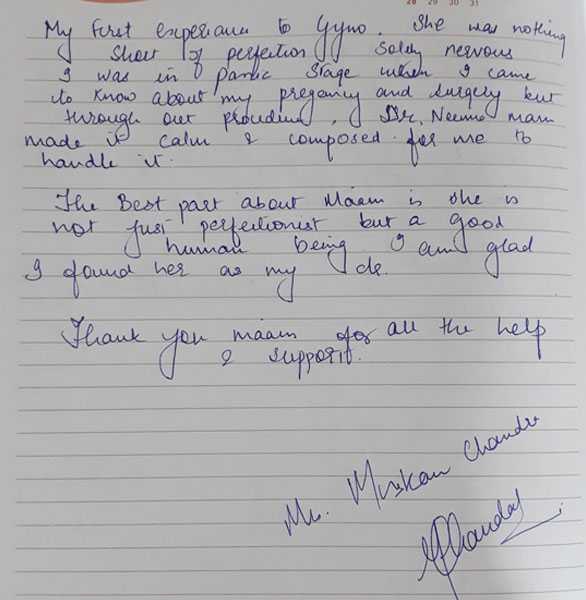 28 29 30 31
My first experience to Gyno. She was nothing
short of perfection. Solely nervous
I was in panic stage when I came
to know about my pregancy and surgery but
through out procedure, Dr. Neema mam
made it calm & composed for me to
handle it.
The Best part about Maam is she is
not just perfectionist but a good
human being I am glad
I found her as my dr.
Thank you maam for all the help
& support.
Muskan